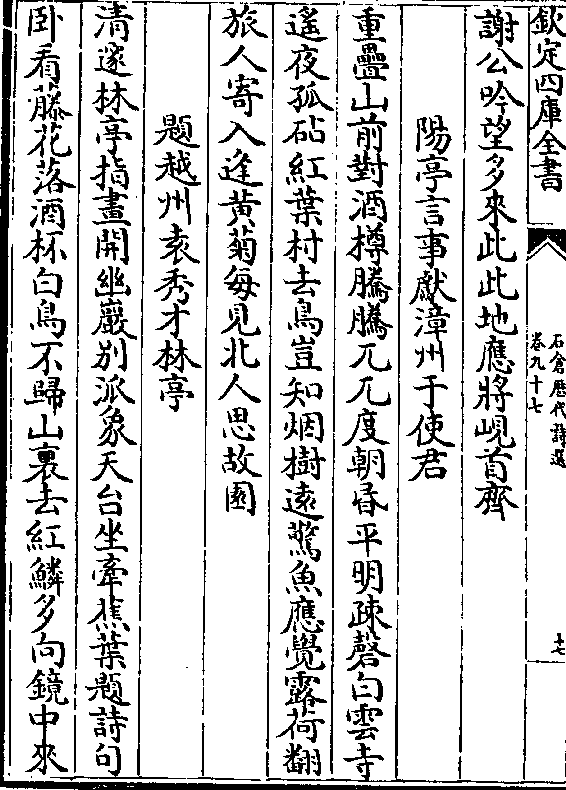 欽定四庫全書
石倉歴代詩選
卷九十七
十七
謝公吟望多來此此地應將峴首齊
陽亭言事獻漳州于使君
重疊山前對酒樽騰騰兀兀度朝昏平明疎磬白雲寺
遙夜孤砧紅葉村去鳥豈知烟樹遠驚魚應覺露荷翻
旅人寄入逢黃菊每見北人思故園
題越州袁秀才林亭
清邃林亭指畫開幽巖别派象天台坐牽蕉葉題詩句
卧看藤花落酒杯白鳥不歸山裏去紅鱗多向鏡中來